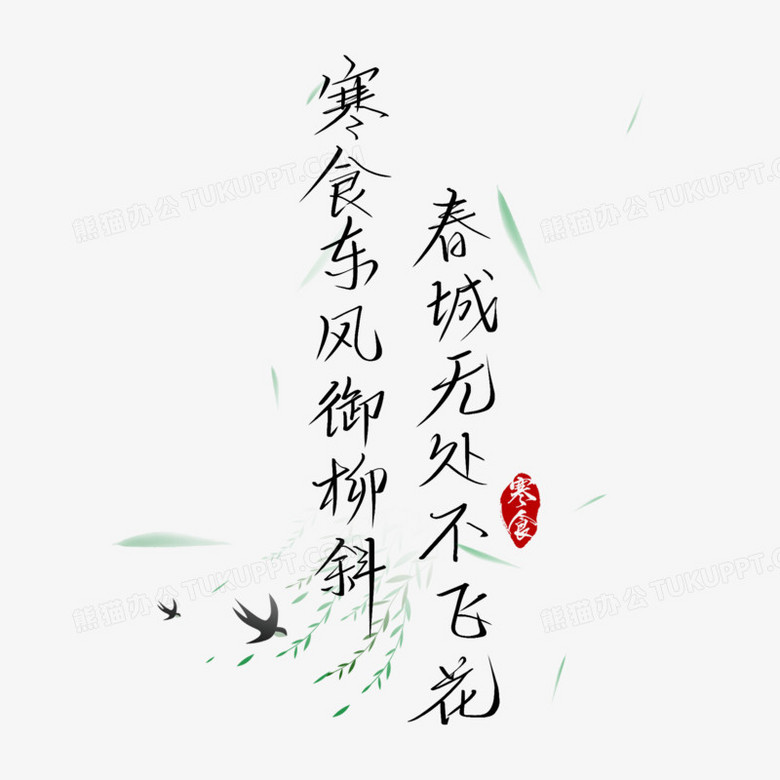 春城无处不飞花
寒食东风御柳斜
寒食
熊猫办公 TUKUPPT.COM
熊猫办公 TUKUPPT.COM
熊猫办公 TUKUPPT.COM
熊猫办公 TUKUPPT.COM